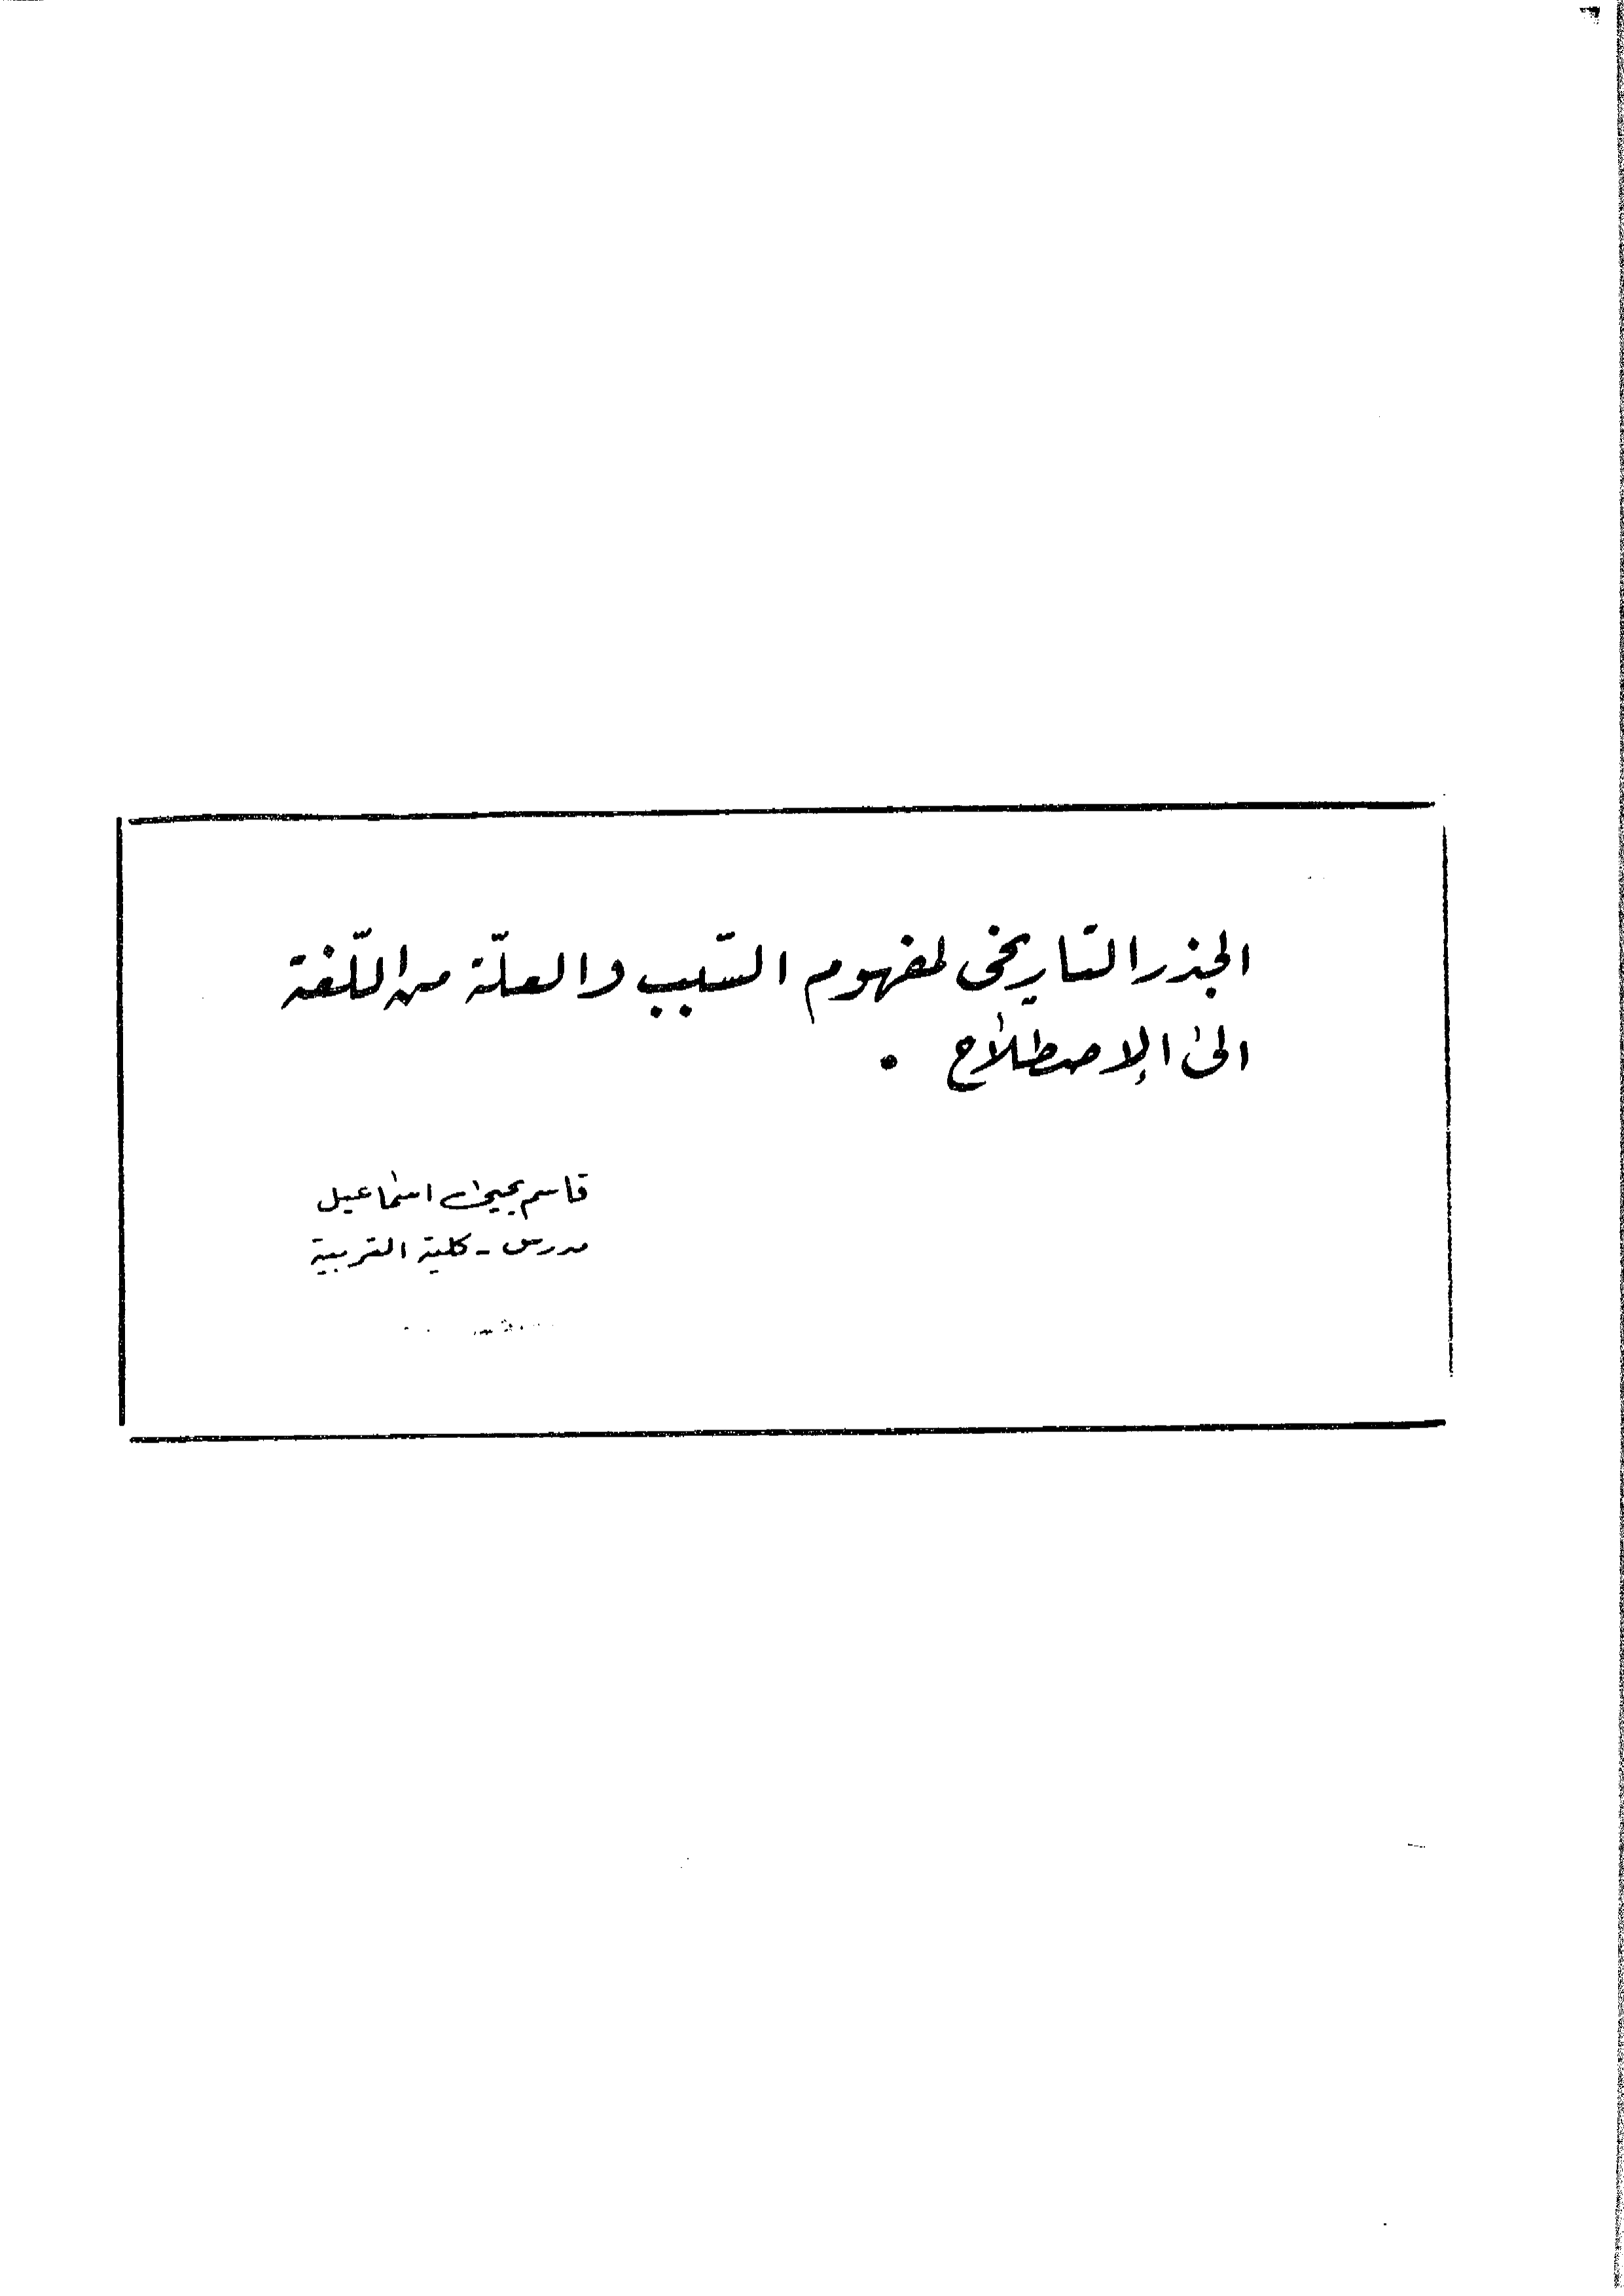 الجذر التاريخي لمفهوم السّبب والعلّة من اللّغة
الى الإصطلاح .
قاسم يحيى اسماعيل
مدرس - كلية التربية